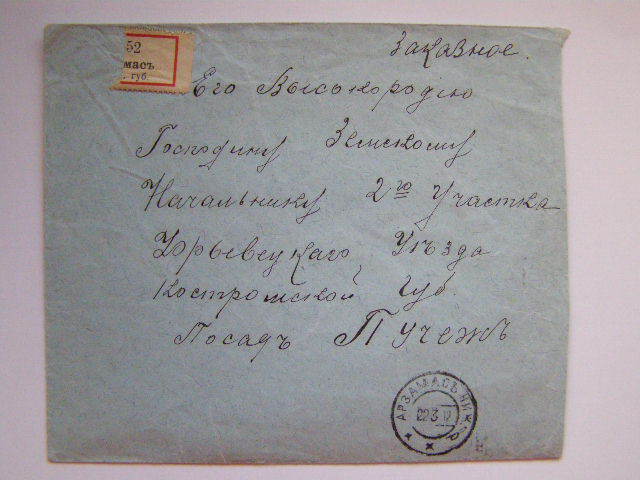 52
масъ
губ.
Заказное.
Его Высокородію
Господину Земскому
Начальнику 2го Участка
Юрьевецкаго Уѣзда
Костромской Губ.
Посадъ Пучежъ
АРЗАМАСЪ НИЖ
22 3